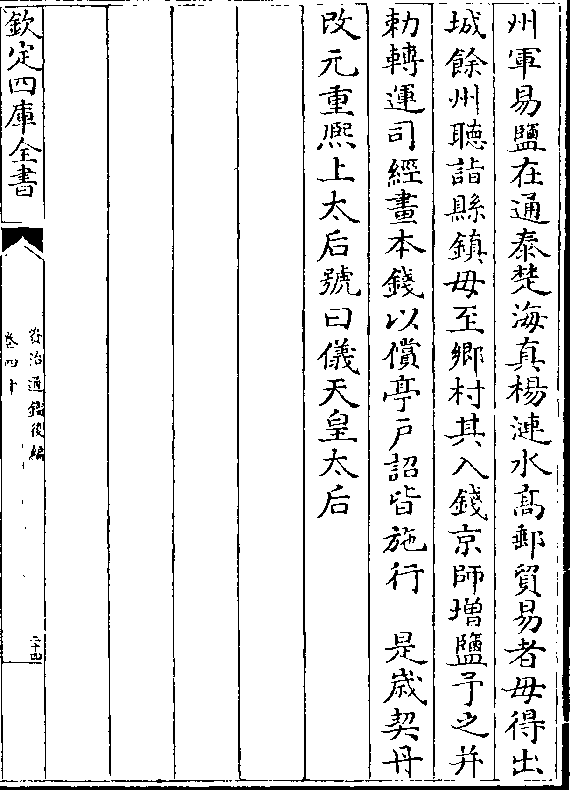 州軍易鹽在通泰楚海真楊漣水高郵貿易者毋得出
城餘州聽詣縣鎮毋至鄉村其入錢京師增鹽予之并
勅轉運司經畫本錢以償亭戸詔皆施行　是歲契丹
改元重熈上太后號曰儀天皇太后
欽定四庫全書
資治通鑑後編
卷四十
二十四